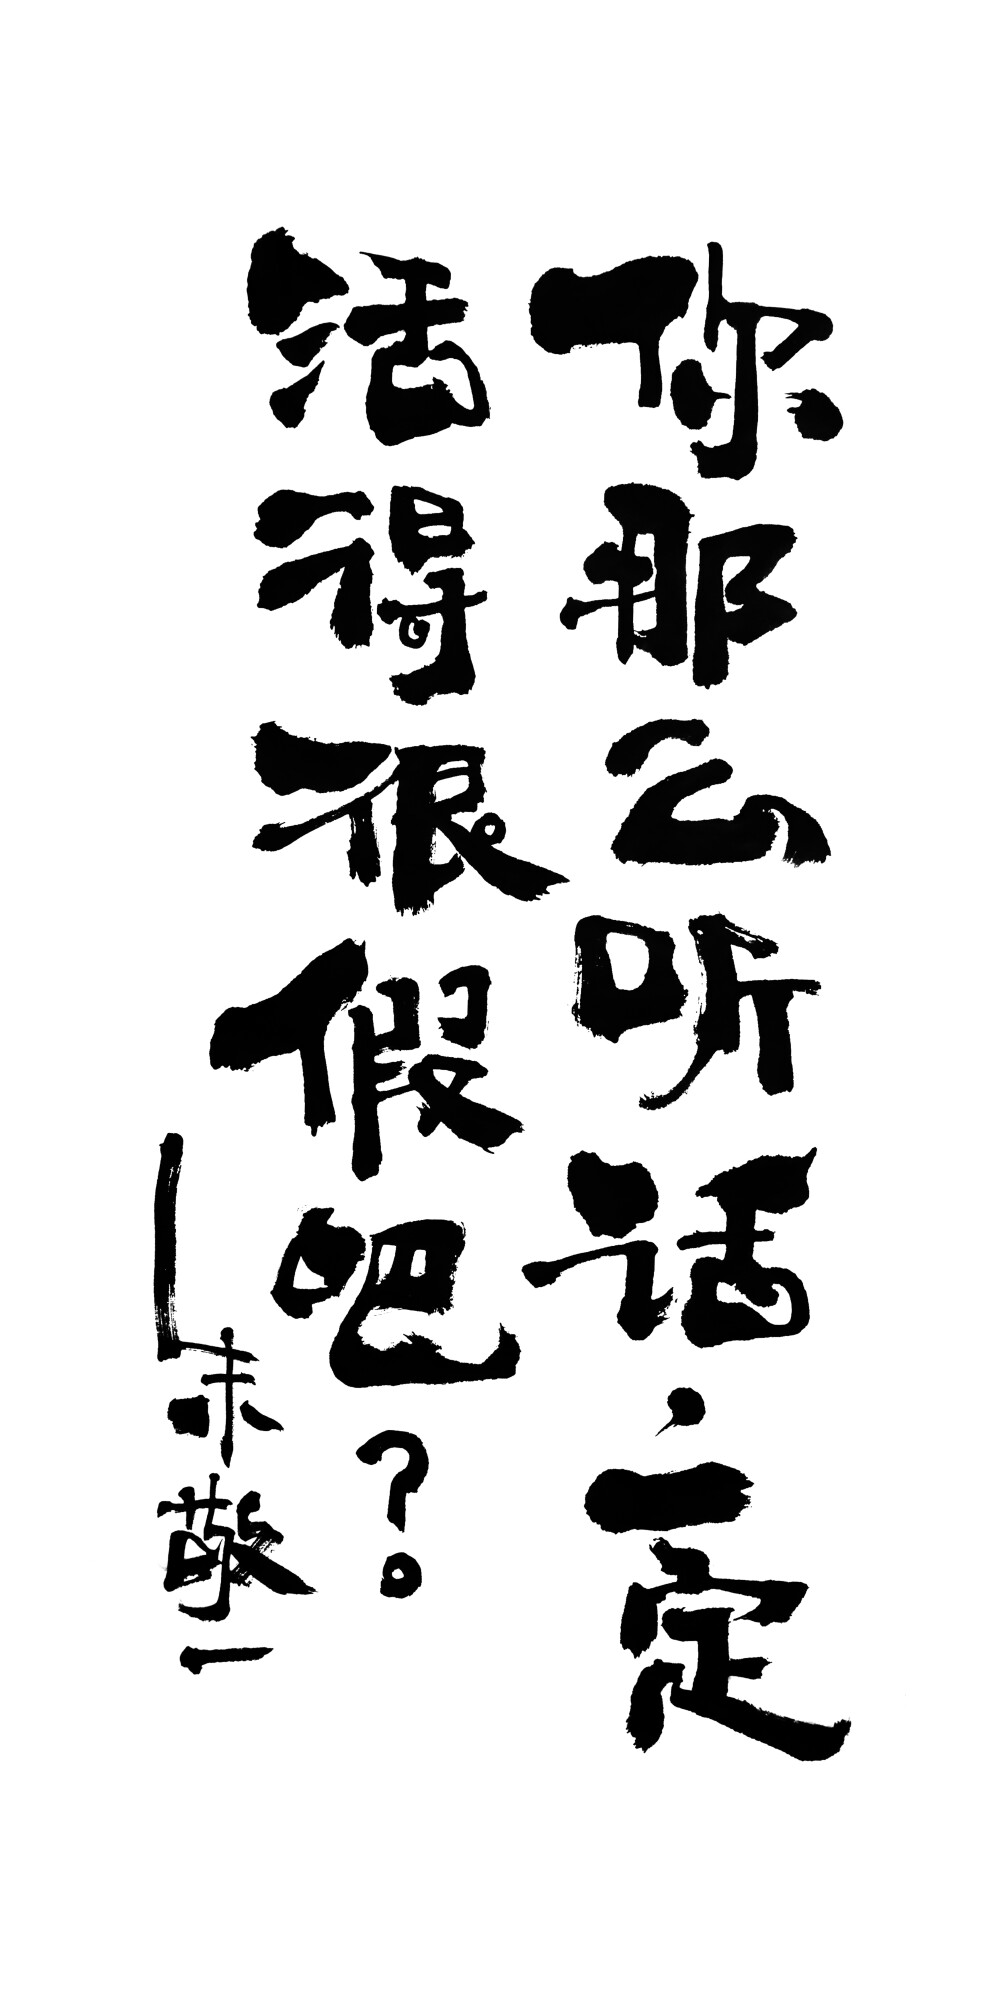 你那么听话，一定
活得很假吧？
朱敬一